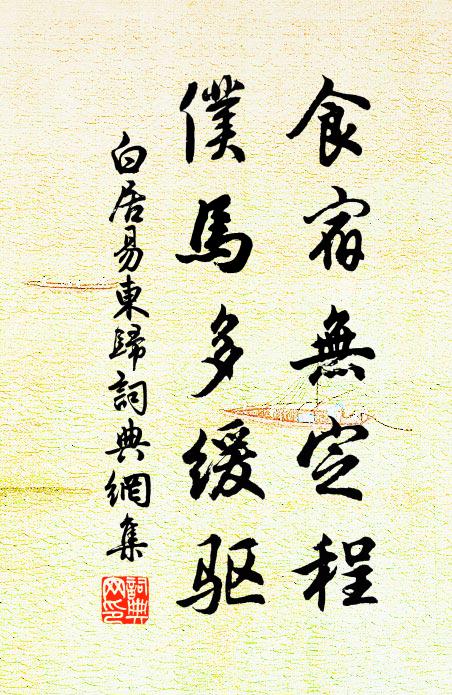 食宿無定程
僕馬多緩驱
白居易東歸詞典網集
詞典
网印